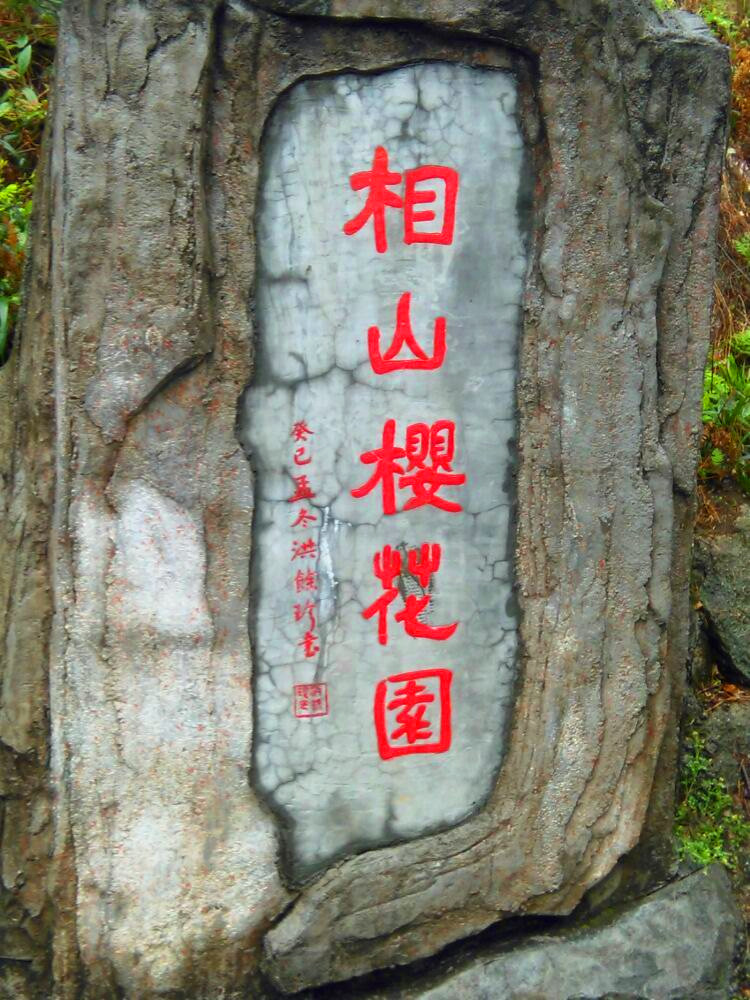 相山櫻花園
癸巳孟冬洪餘珍書